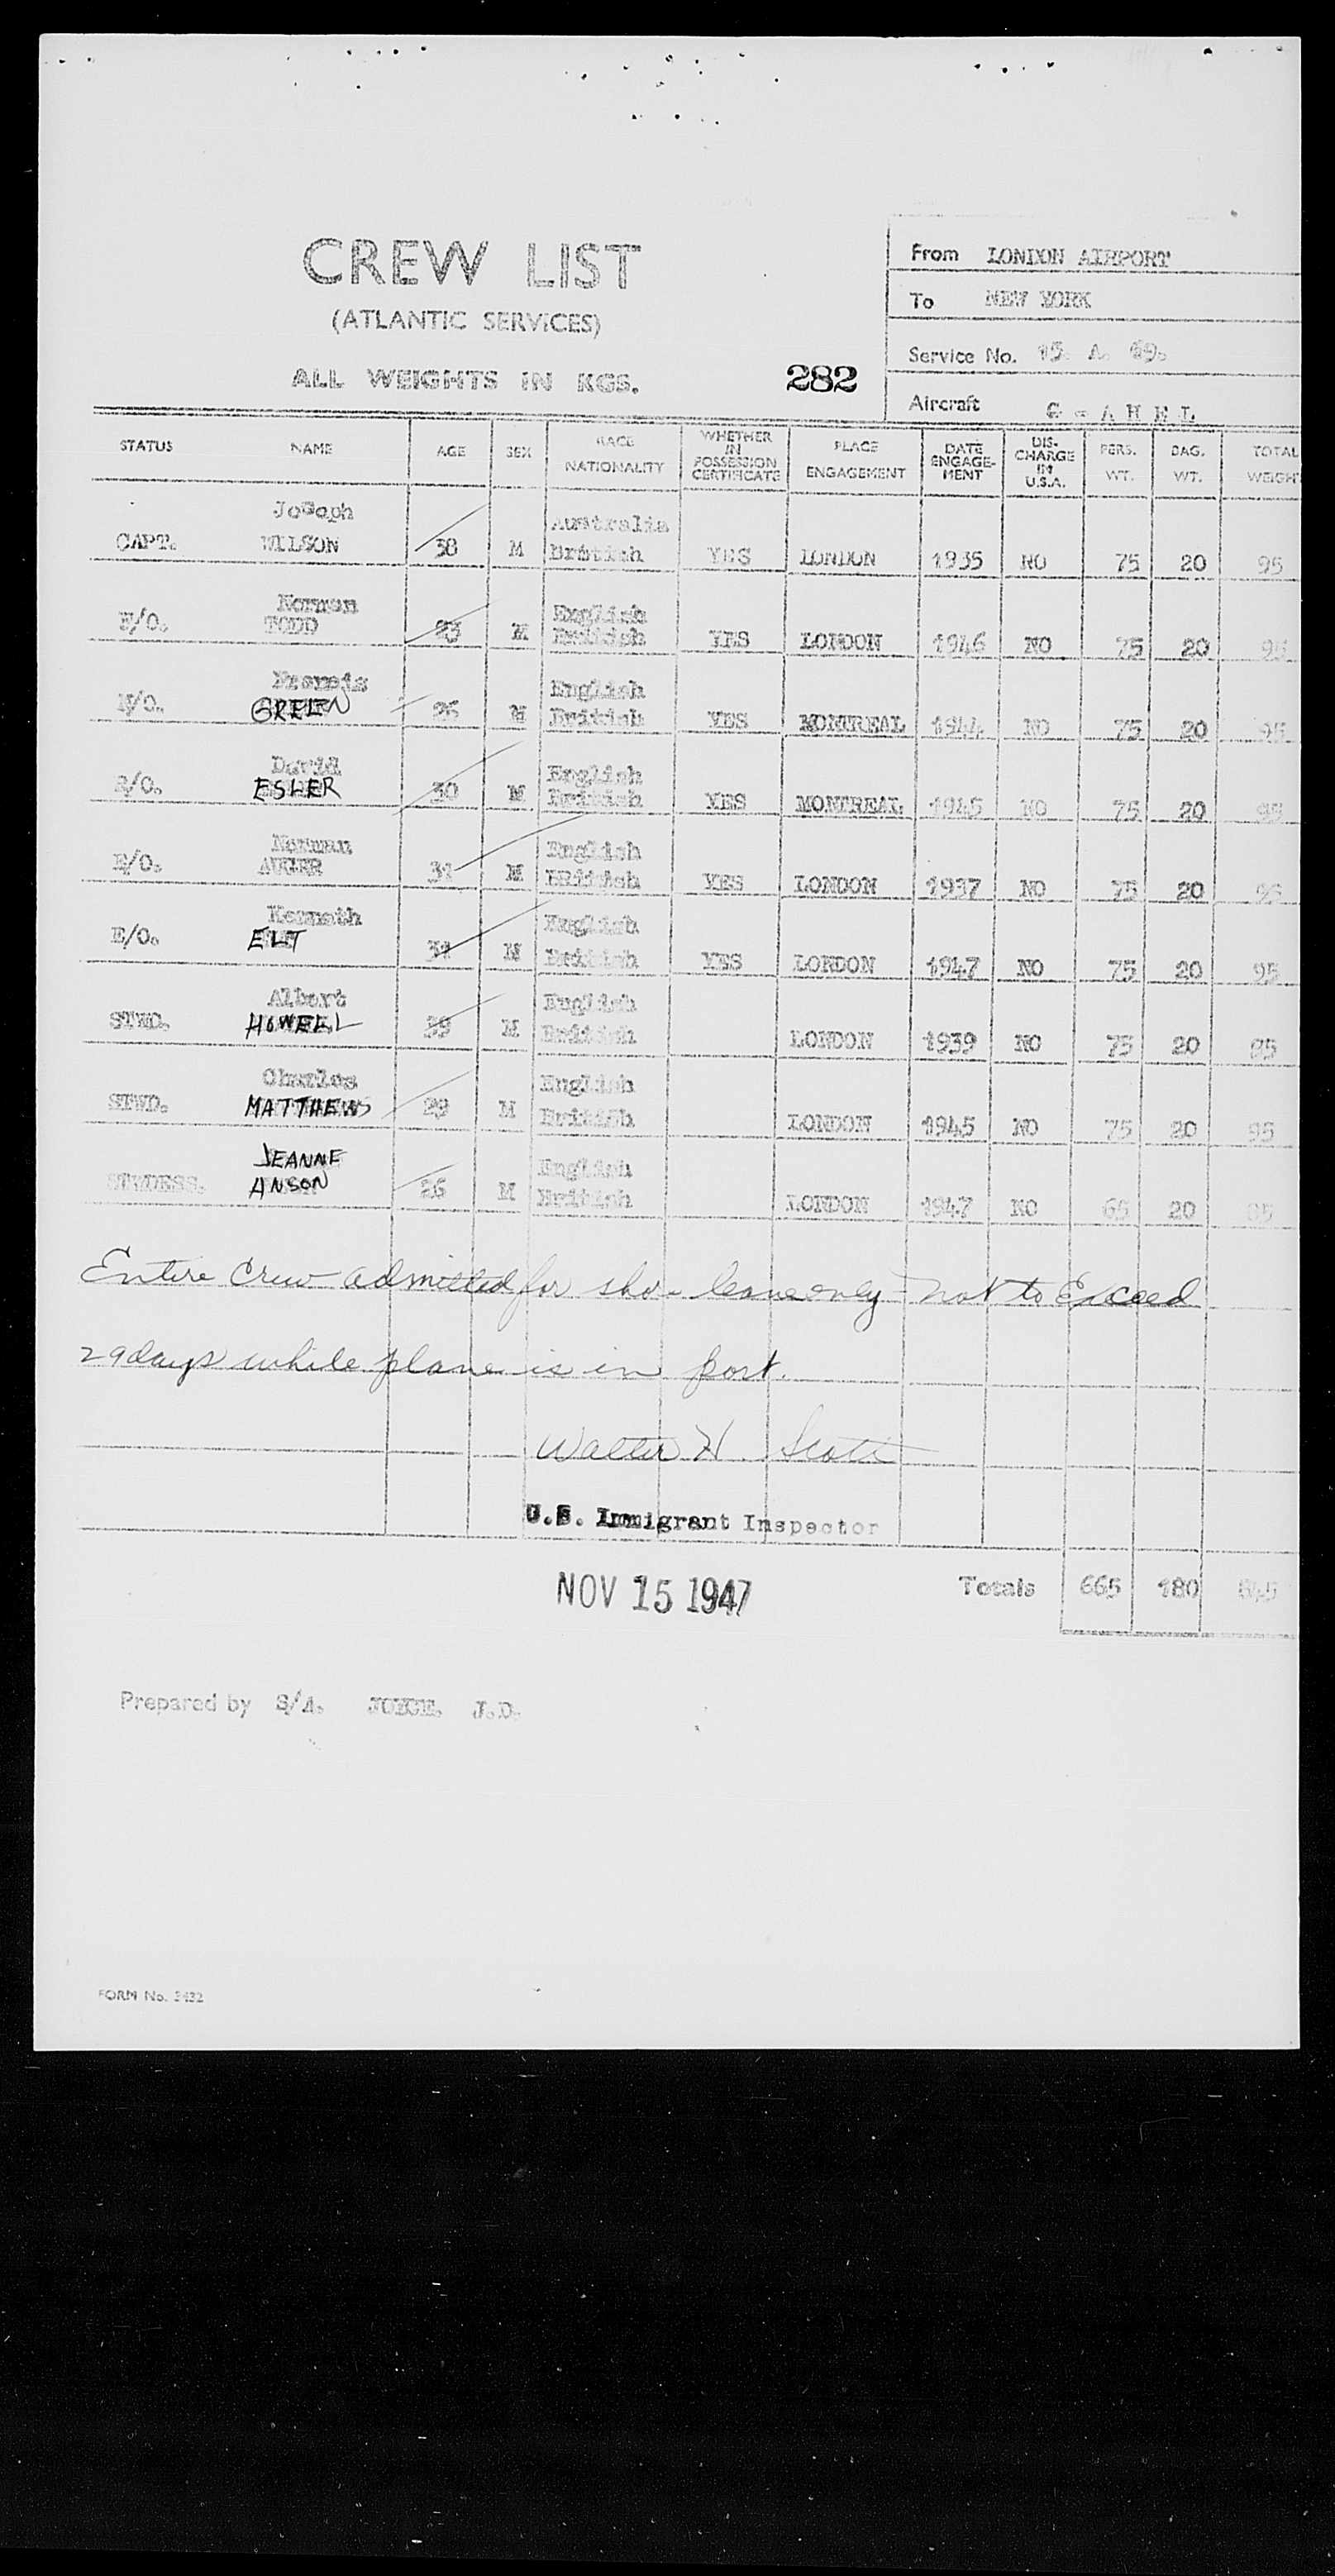 CREW LIST
(ATLANTIC SERVICES)
ALL WEIGHTS IN KGS.
282
From LONDON AIRPORT
To NEW YORK
Service No. 15. A. 19.
Aircraft G - A H E L
STATUS NAME AGE SEX RACE NATIONALITY WHETHER IN POSSESSION CERTIFICATE PLACE ENGAGEMENT DATE ENGAGE-MENT DIS-CHARGE IN U.S.A. PERS. WT. BAG. WT. TOTAL WEIGHT
Joseph Australia
CAPT. WILSON 38 M British YES LONDON 1935 NO 75 20 95
Norman English
F/O. TODD 23 M British YES LONDON 1946 NO 75 20 95
Francis English
N/O. GREEN 26 M British YES MONTREAL 1944 NO 75 20 95
David English
R/O. ESLER 30 M British YES MONTREAL 1945 NO 75 20 95
Norman English
E/O. AUGER 31 M BRitish YES LONDON 1937 NO 75 20 95
Kenneth English
E/O. ELT 31 M British YES LONDON 1947 NO 75 20 95
Albert English
STWD. HOWELL 39 M British LONDON 1939 NO 75 20 95
Charles English
STWD. MATTHEWS 29 M British LONDON 1945 NO 75 20 95
JEANNE English
STWDESS. ANSON 26 M British LONDON 1947 NO 65 20 85
Entire Crew admitted for shore leave only - not to Exceed
29 days while plane is in port.
Walter H. Scott
U.S. Immigrant Inspector
NOV 15 1947
Totals 665 180 845
Prepared by S/A. J.D.
FORM No. 2432